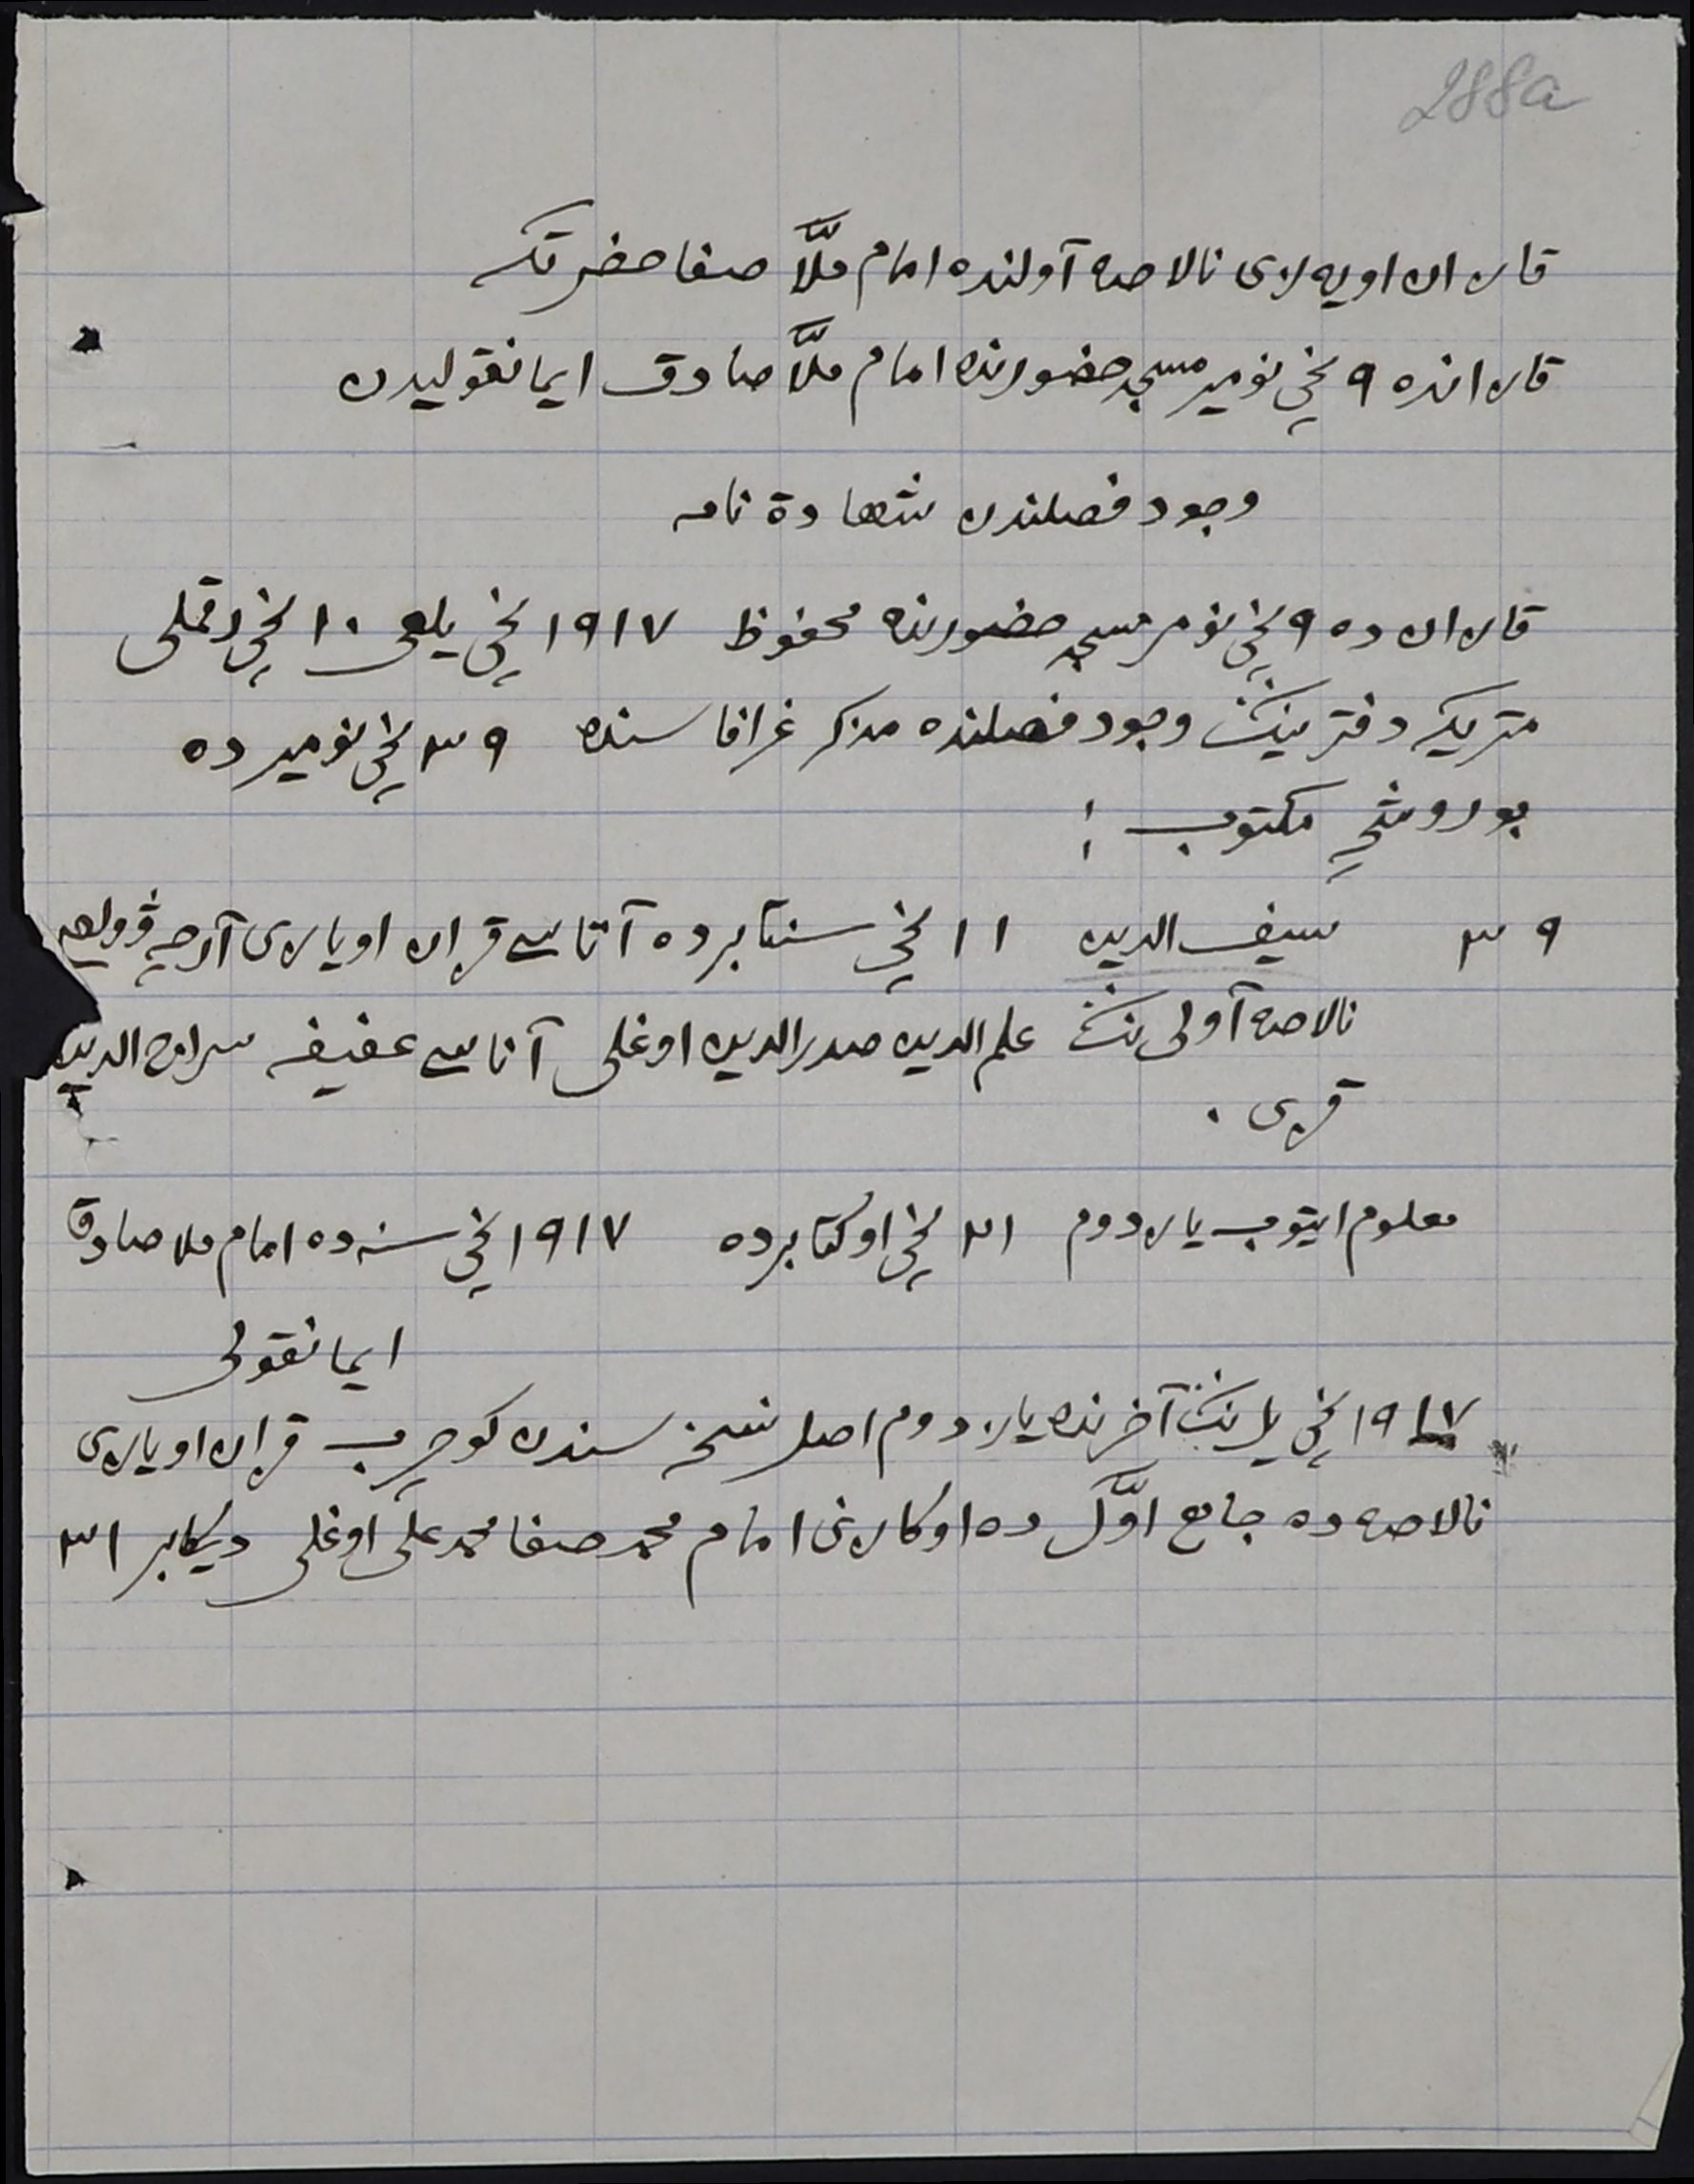 288a
قازان اویه زی نالاصه آولنده امام ملّا صفا حضرتکه
قازانده ۹ نچی نومیر مسجد حضورنده امام ملّا صادق ایمانقولیدن
وجود فصلندن شهادة نامه
قازان ده ۹ نچی نومر مسجد حضورنده محفوظ ۱۹۱۷ نچی یلغی ۱۰ نچی رقملی
متریکه دفترینیڭ وجود فصلنده مذکر غرافا سنده ۳۹ نچی نومیر ده
بو روشچه مکتوب :
۳۹ سیف الدین ۱۱ نچی سنتابرده آتاسی قزان اویازی آرچه ڤولصی
نالاصه آولی نڭ علم الدین صدرالدین اوغلی آناسی عفیفه سراج الدین
قزی .
معلوم ایتوب یازدوم ۳۱ نچی اوکتابرده ۱۹۱۷ نچی سنه ده امام ملا صادق
ایمانقولی
۱۹۱۷ نچی یل نڭ آخرنده یازدوم اصل نسخه سندن کوچرب قزان اویازی
نالاصه ده جامع اوّل ده اوکازنی امام محمد صفا محمد علی اوغلی دیکابر ۳۱